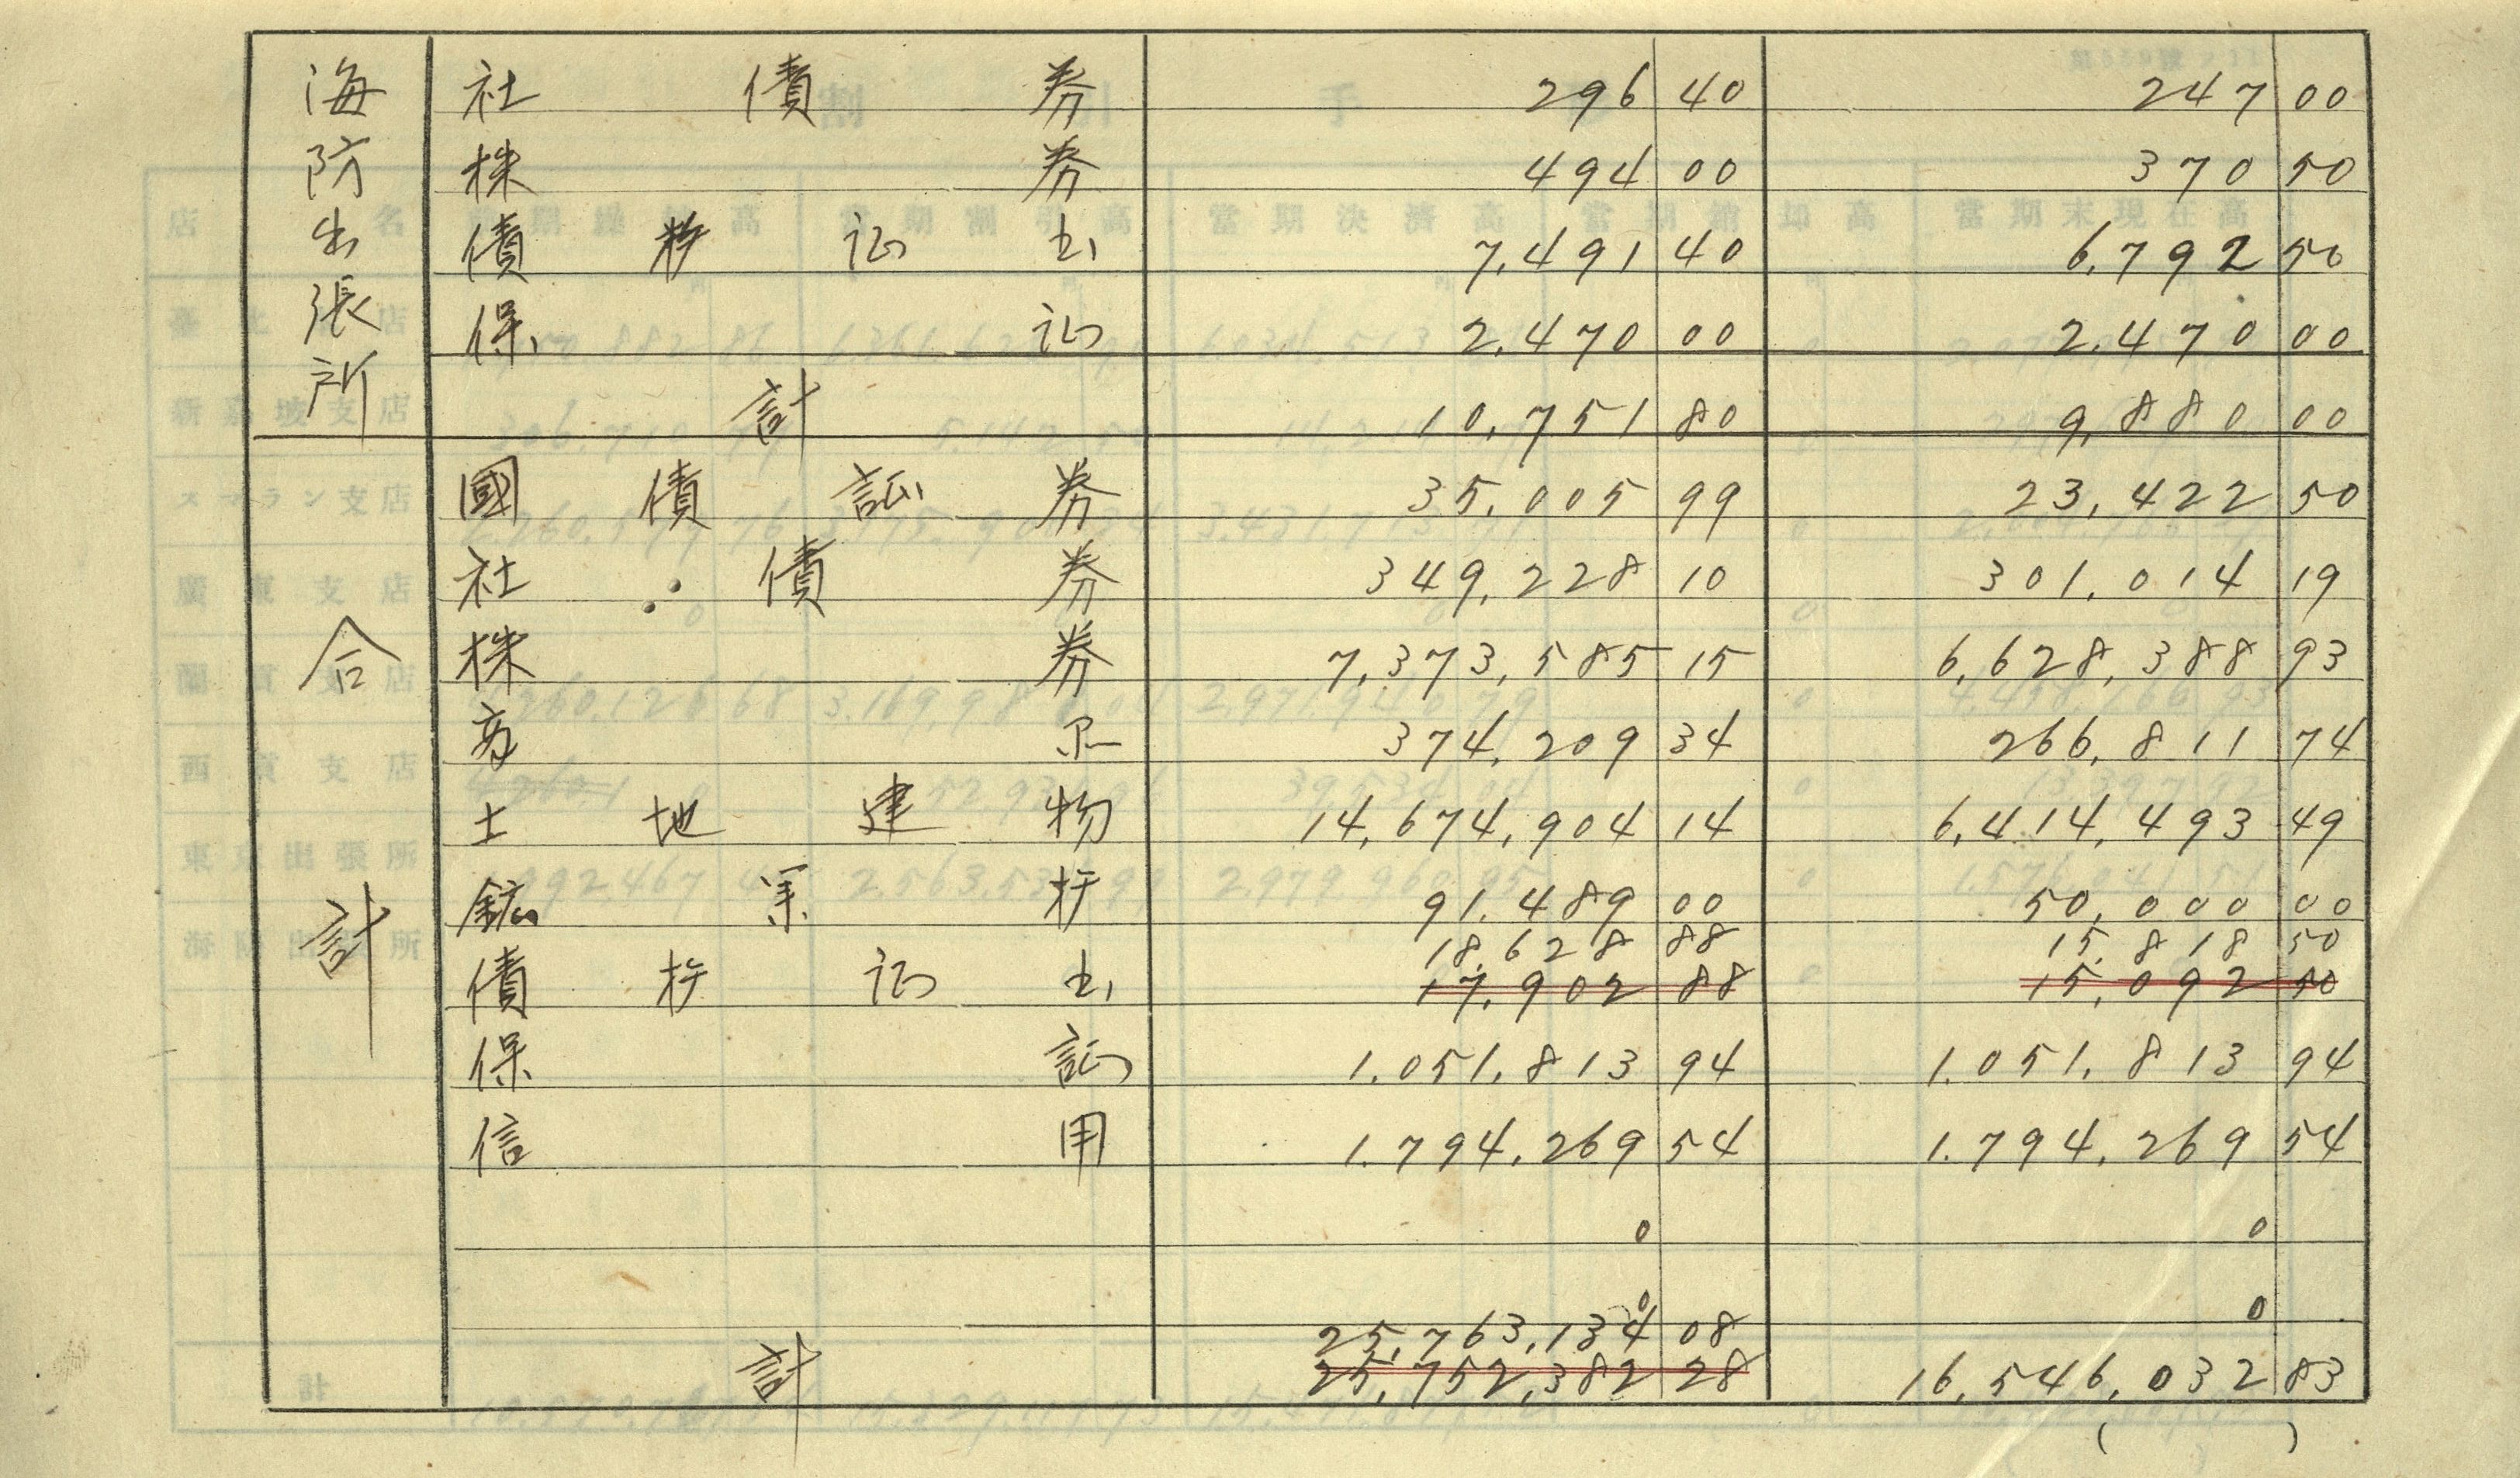 海防出張所
社債券 296 40 247 00
株券 494 00 370 50
債权証書 7,491 40 6,792 50
保証 2,470 00 2,470 00
計 10,751 80 9,880 00
合計
國債証券 35,005 99 23,422 50
社債券 349,228 10 301,014 19
株券 7,373,585 15 6,628,388 93
商品 374,209 34 266,811 74
土地建物 14,674,904 14 6,414,493 49
鉱業权 91,489 00 50,000 00
18,628 88 15,818 50
債权証書 17,902 88 15,092 50
保証 1,051,813 94 1,051,813 94
信用 1,794,269 54 1,794,269 54
0 0
0 0
25,763,134 08
計 25,752,382 28 16,546,032 83
( )